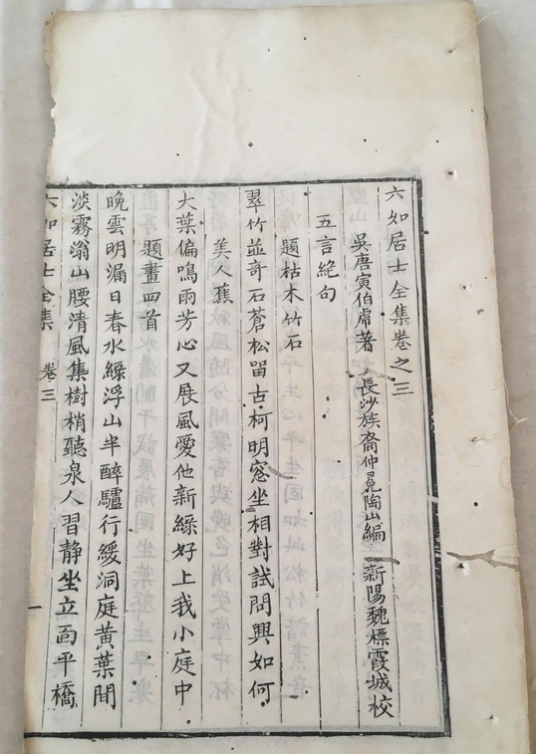 六如居士全集卷之三
吳唐寅伯虎著 長沙族裔仲冕陶山編 新陽魏標霞城校
五言絶句
題枯木竹石
翠竹並奇石蒼松留古柯明窓坐相對試問興如何
美人蕉
大葉偏鳴雨芳心又展風愛他新綠好上我小庭中
題畫四首
晚雲明漏日春水綠浮山半醉驢行緩洞庭黃葉間
淡霧滃山腰清風集樹梢聽泉人習静坐立面平橋
六如居士全集 卷三 一